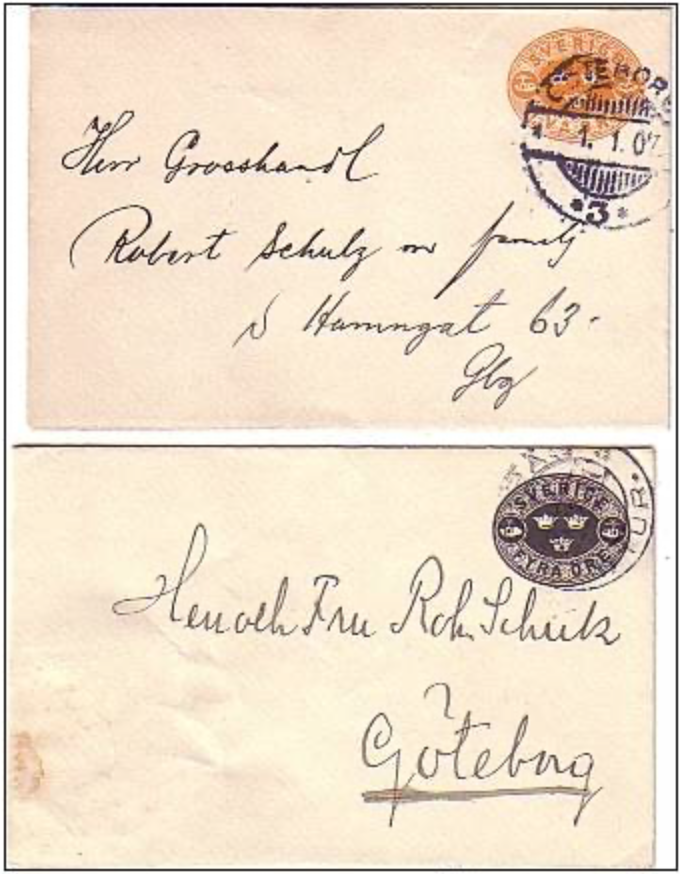 SVERIGE
TVÅ
TEBOR
1. 1. 07
*3*
Herr Grosshandl
Robert Schulz m familj
S Hamngat 63-
Gbg
SVERIGE
FYRA ÖRE
Herr och Fru Rob. Schultz
Göteborg